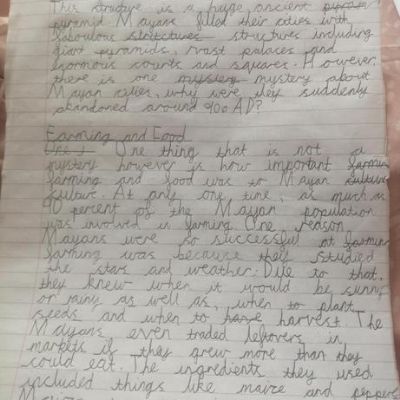 This structure is a huge, ancient
pyramid Mayans filled their cities with
fabulous structures structures including
giant pyramids, vast palaces and
enormous courts and squares. However,
there is one mystery mystery about
Mayan cities, why were they suddenly
abandoned around 900 AD?
Farming and Food
One thing that is not a
mystery however is how important farming
farming and food was to Mayan culture
culture. At any one time, as much as
90 percent of the Mayan population
was involved in farming. One reason
Mayans were so successful at farming
farming was because they studied
the stars and weather. Due to that,
they knew when it would be sunny
or rainy as well as, when to plant
seeds and when to harvest. The
Mayans even traded leftovers in
markets if they grew more than they
could eat. The ingredients they used
included things like maize and peppers